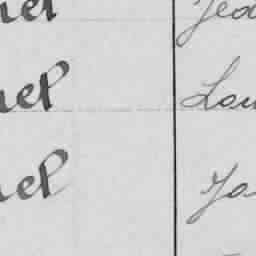 nel Jea
nel Lou
nel Ja